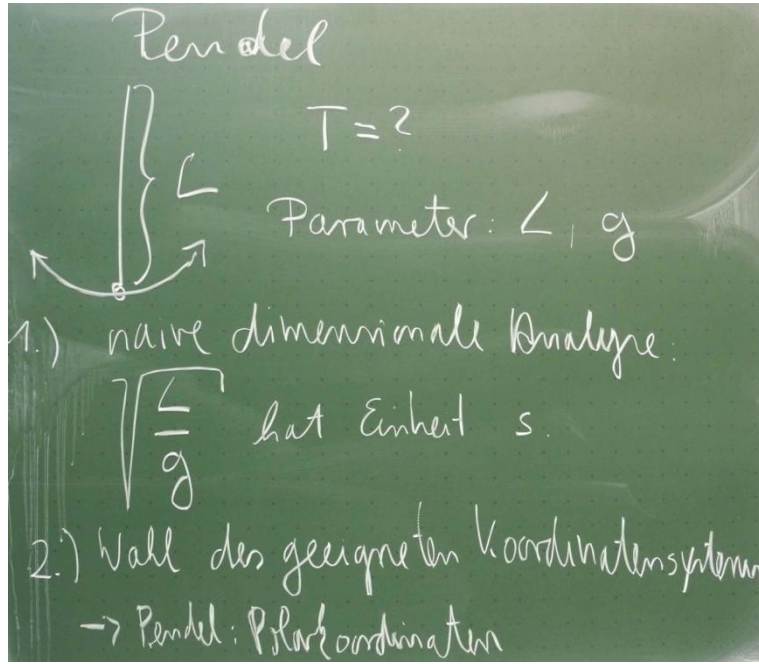 Pendel
T = ?
L
Parameter: L, g
1.) naive dimensionale Analyse:
√(L/g) hat Einheit s.
2.) Wahl des geeigneten Koordinatensystems
-> Pendel: Polarkoordinaten